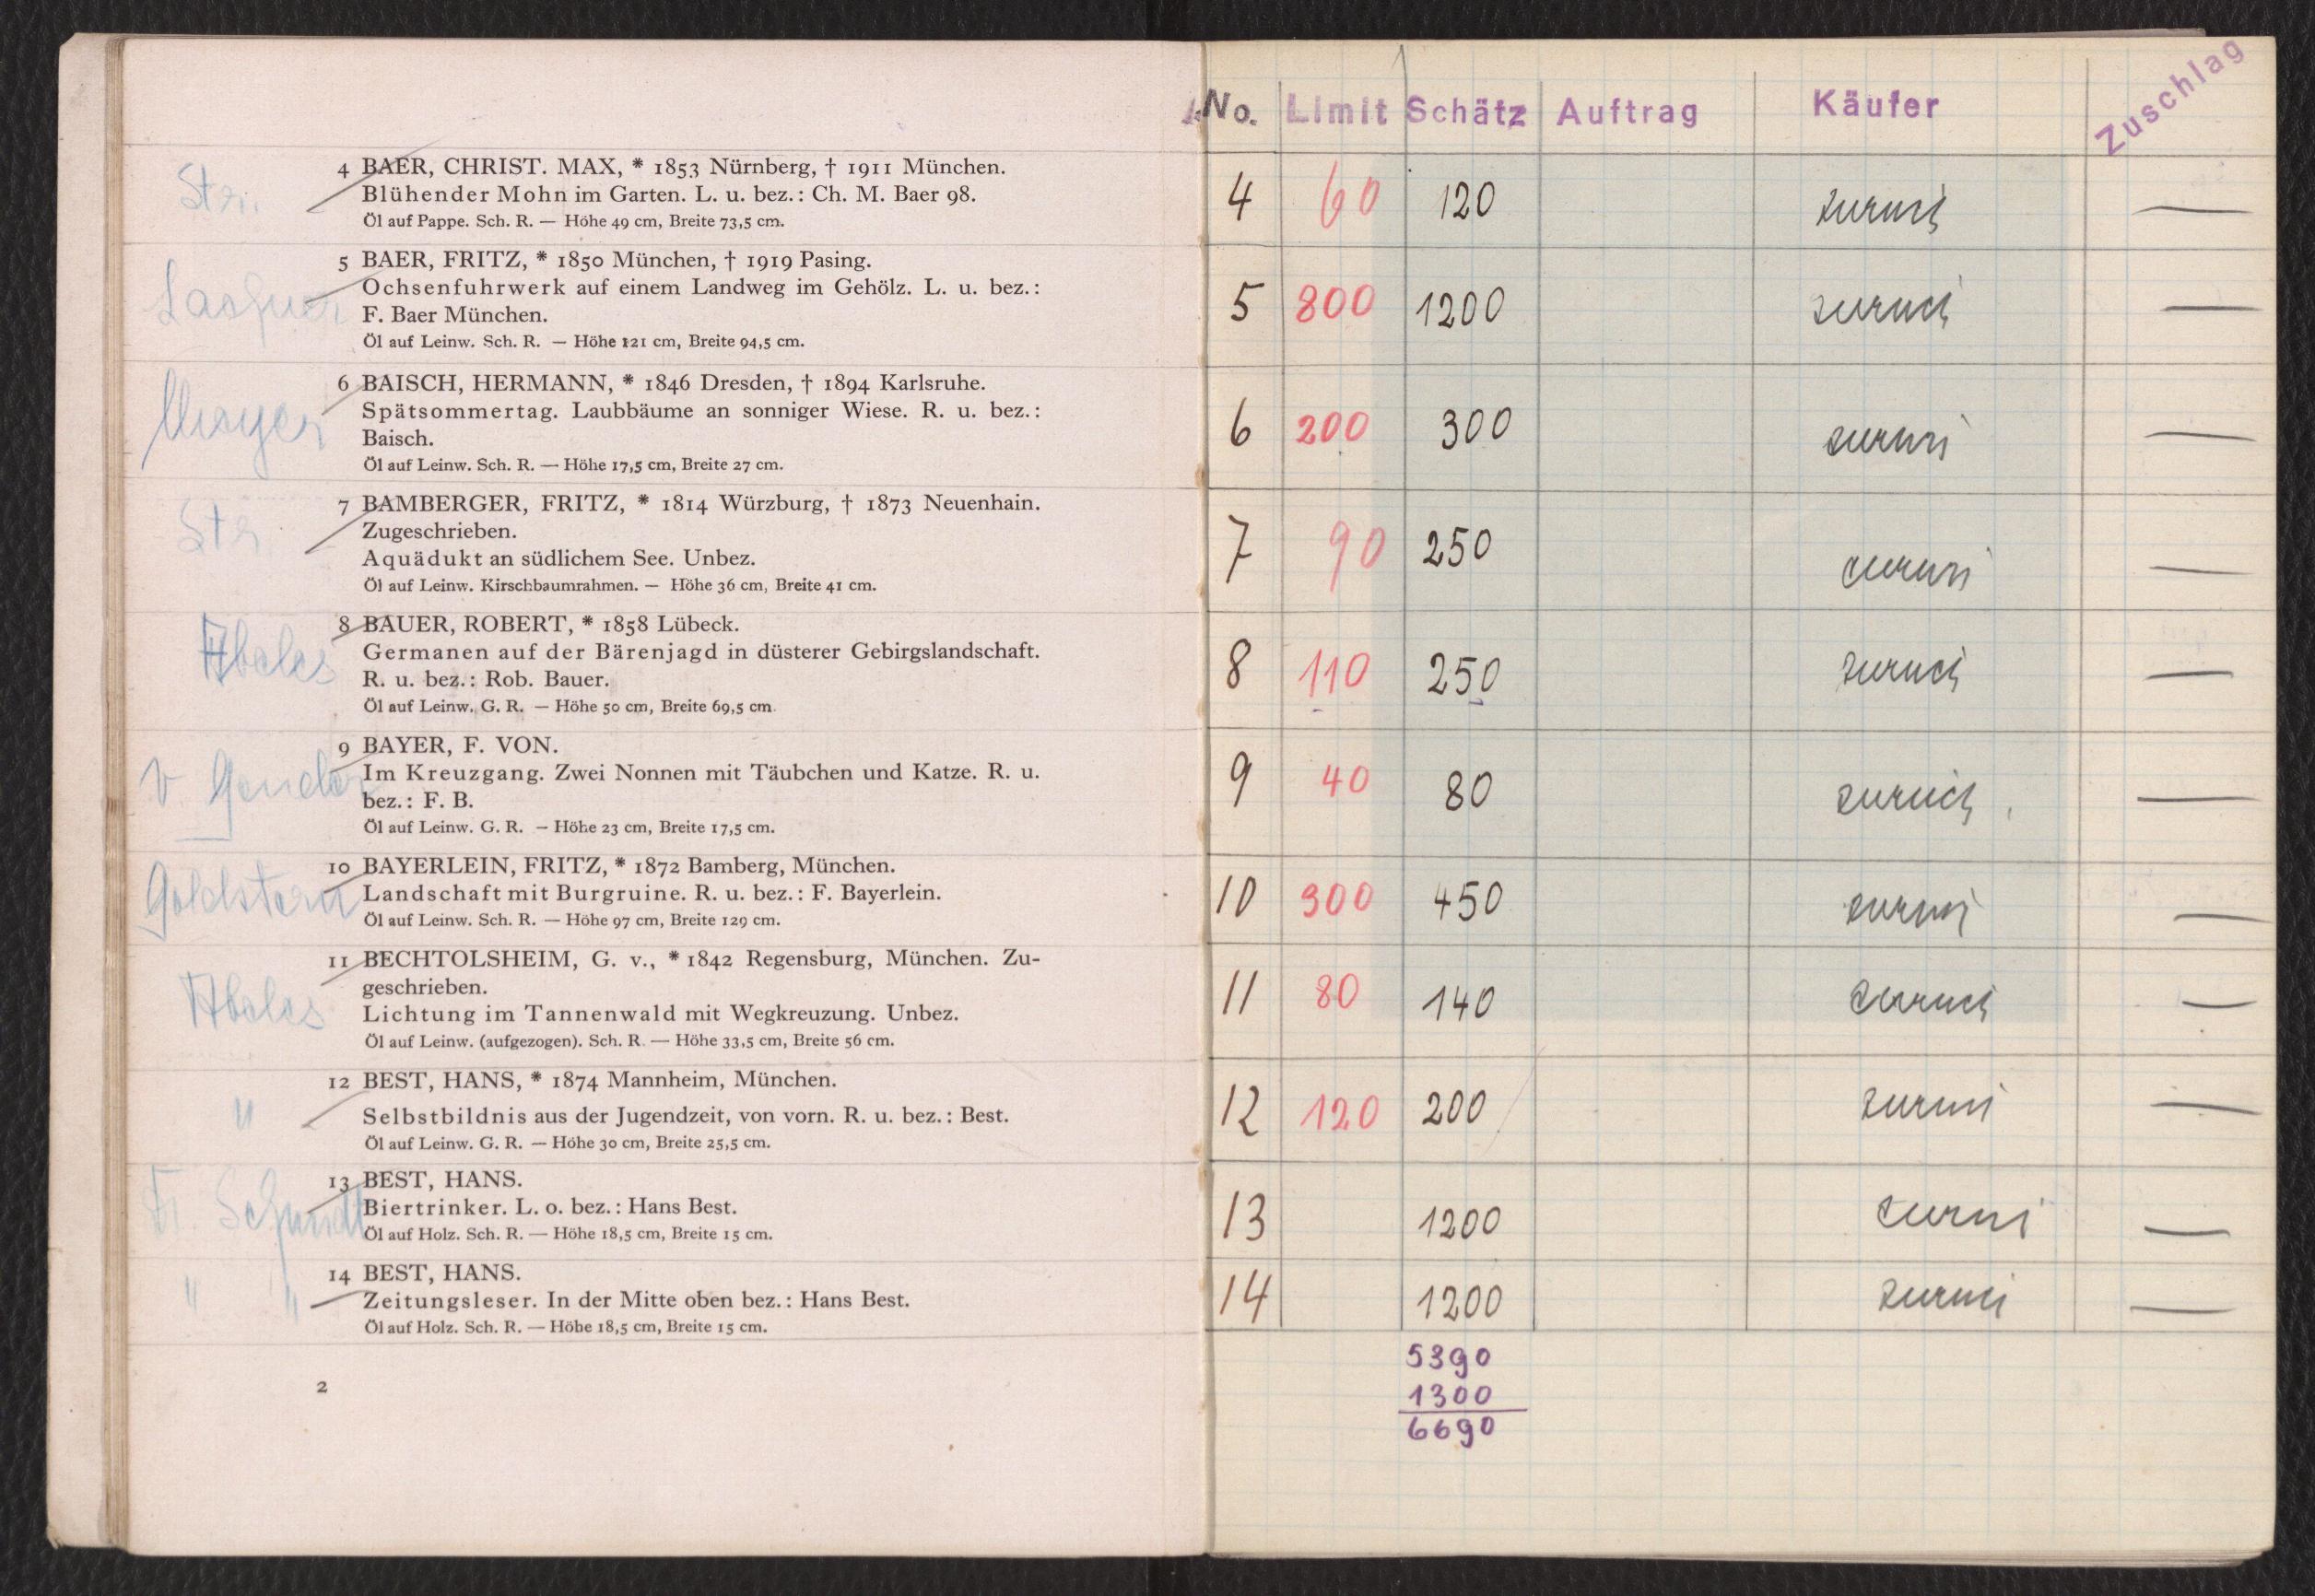 Str.
4 BAER, CHRIST. MAX, * 1853 Nürnberg, † 1911 München.
Blühender Mohn im Garten. L. u. bez.: Ch. M. Baer 98.
Öl auf Pappe. Sch. R. — Höhe 49 cm, Breite 73,5 cm.
5 BAER, FRITZ, * 1850 München, † 1919 Pasing.
Ochsenfuhrwerk auf einem Landweg im Gehölz. L. u. bez.:
F. Baer München.
Öl auf Leinw. Sch. R. — Höhe 121 cm, Breite 94,5 cm.
Mayer
6 BAISCH, HERMANN, * 1846 Dresden, † 1894 Karlsruhe.
Spätsommertag. Laubbäume an sonniger Wiese. R. u. bez.:
Baisch.
Öl auf Leinw. Sch. R. — Höhe 17,5 cm, Breite 27 cm.
Str.
7 BAMBERGER, FRITZ, * 1814 Würzburg, † 1873 Neuenhain.
Zugeschrieben.
Aquädukt an südlichem See. Unbez.
Öl auf Leinw. Kirschbaumrahmen. — Höhe 36 cm, Breite 41 cm.
Abeles
8 BAUER, ROBERT, * 1858 Lübeck.
Germanen auf der Bärenjagd in düsterer Gebirgslandschaft.
R. u. bez.: Rob. Bauer.
Öl auf Leinw. G. R. — Höhe 50 cm, Breite 69,5 cm.
v.
9 BAYER, F. VON.
Im Kreuzgang. Zwei Nonnen mit Täubchen und Katze. R. u.
bez.: F. B.
Öl auf Leinw. G. R. — Höhe 23 cm, Breite 17,5 cm.
Goldstern
10 BAYERLEIN, FRITZ, * 1872 Bamberg, München.
Landschaft mit Burgruine. R. u. bez.: F. Bayerlein.
Öl auf Leinw. Sch. R. — Höhe 97 cm, Breite 129 cm.
Abeles
11 BECHTOLSHEIM, G. v., * 1842 Regensburg, München. Zu-
geschrieben.
Lichtung im Tannenwald mit Wegkreuzung. Unbez.
Öl auf Leinw. (aufgezogen). Sch. R. — Höhe 33,5 cm, Breite 56 cm.
"
12 BEST, HANS, * 1874 Mannheim, München.
Selbstbildnis aus der Jugendzeit, von vorn. R. u. bez.: Best.
Öl auf Leinw. G. R. — Höhe 30 cm, Breite 25,5 cm.
Fr. Schmidt
13 BEST, HANS.
Biertrinker. L. o. bez.: Hans Best.
Öl auf Holz. Sch. R. — Höhe 18,5 cm, Breite 15 cm.
" "
14 BEST, HANS.
Zeitungsleser. In der Mitte oben bez.: Hans Best.
Öl auf Holz. Sch. R. — Höhe 18,5 cm, Breite 15 cm.
2
No. Limit Schätz Auftrag Käufer Zuschlag
4 60 120 zurück —
5 800 1200 zurück —
6 200 300 zurück —
7 90 250 zurück —
8 110 250 zurück —
9 40 80 zurück —
10 300 450 zurück —
11 80 140 zurück —
12 120 200 zurück —
13 1200 zurück —
14 1200 zurück —
5390
1300
6690